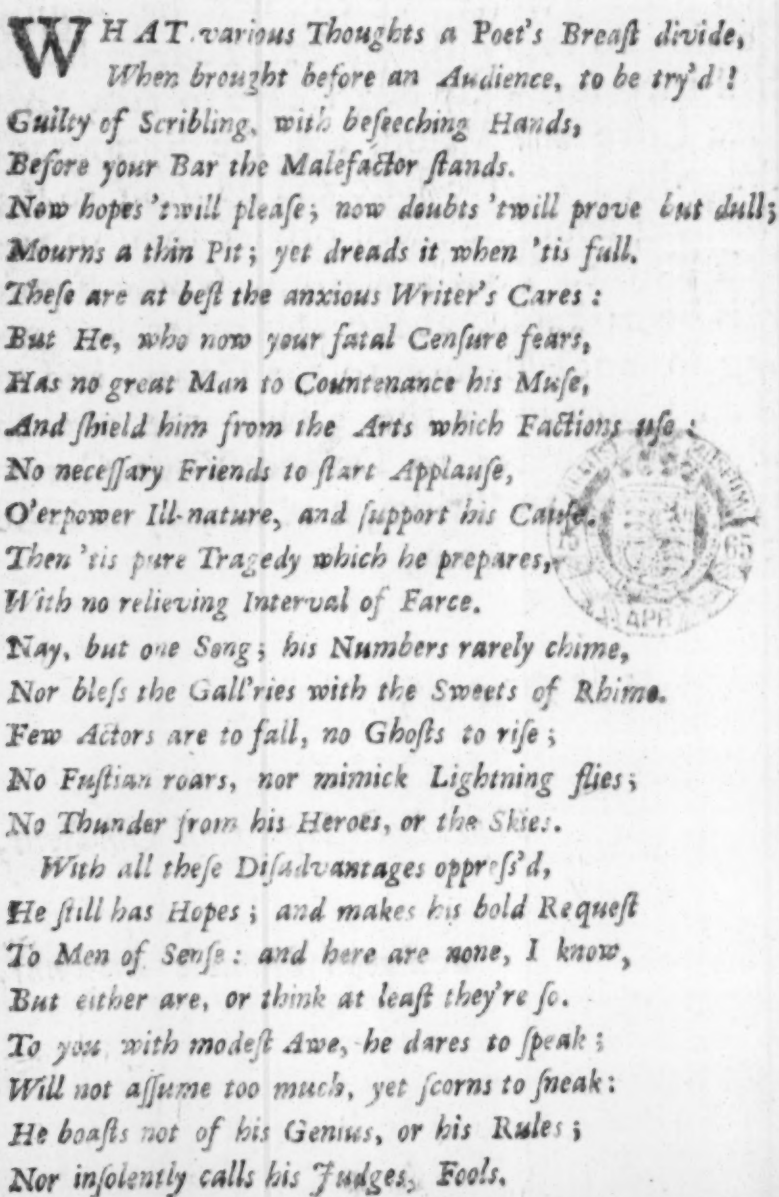 WHAT various Thoughts a Poet's Breaſt divide,
When brought before an Audience, to be try'd!
Guilty of Scribling, with beſeeching Hands,
Before your Bar the Malefactor ſtands.
Now hopes 'twill pleaſe; now doubts 'twill prove but dull;
Mourns a thin Pit; yet dreads it when 'tis full.
Theſe are at beſt the anxious Writer's Cares:
But He, who now your fatal Cenſure fears,
Has no great Man to Countenance his Muſe,
And ſhield him from the Arts which Factions uſe:
No neceſſary Friends to ſtart Applauſe,
O'erpower Ill-nature, and ſupport his Cauſe.
Then 'tis pure Tragedy which he prepares,
With no relieving Interval of Farce.
Nay, but one Song; his Numbers rarely chime,
Nor bleſs the Gall'ries with the Sweets of Rhime.
Few Actors are to fall, no Ghoſts to riſe;
No Fuſtian roars, nor mimick Lightning flies;
No Thunder from his Heroes, or the Skies.
With all theſe Diſadvantages oppreſs'd,
He ſtill has Hopes; and makes his bold Requeſt
To Men of Senſe: and here are none, I know,
But either are, or think at leaſt they're ſo.
To you with modeſt Awe, he dares to ſpeak;
Will not aſſume too much, yet ſcorns to ſneak:
He boaſts not of his Genius, or his Rules;
Nor inſolently calls his Judges, Fools.
65
APR